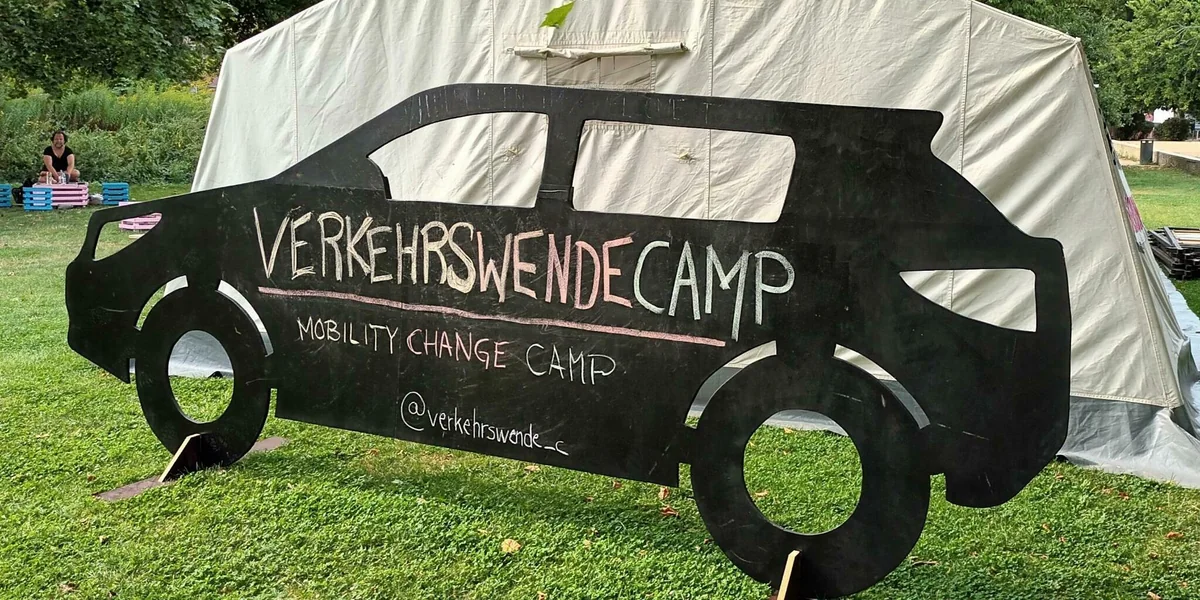 VERKEHRSWENDECAMP
MOBILITY CHANGE CAMP
@verkehrswende_c